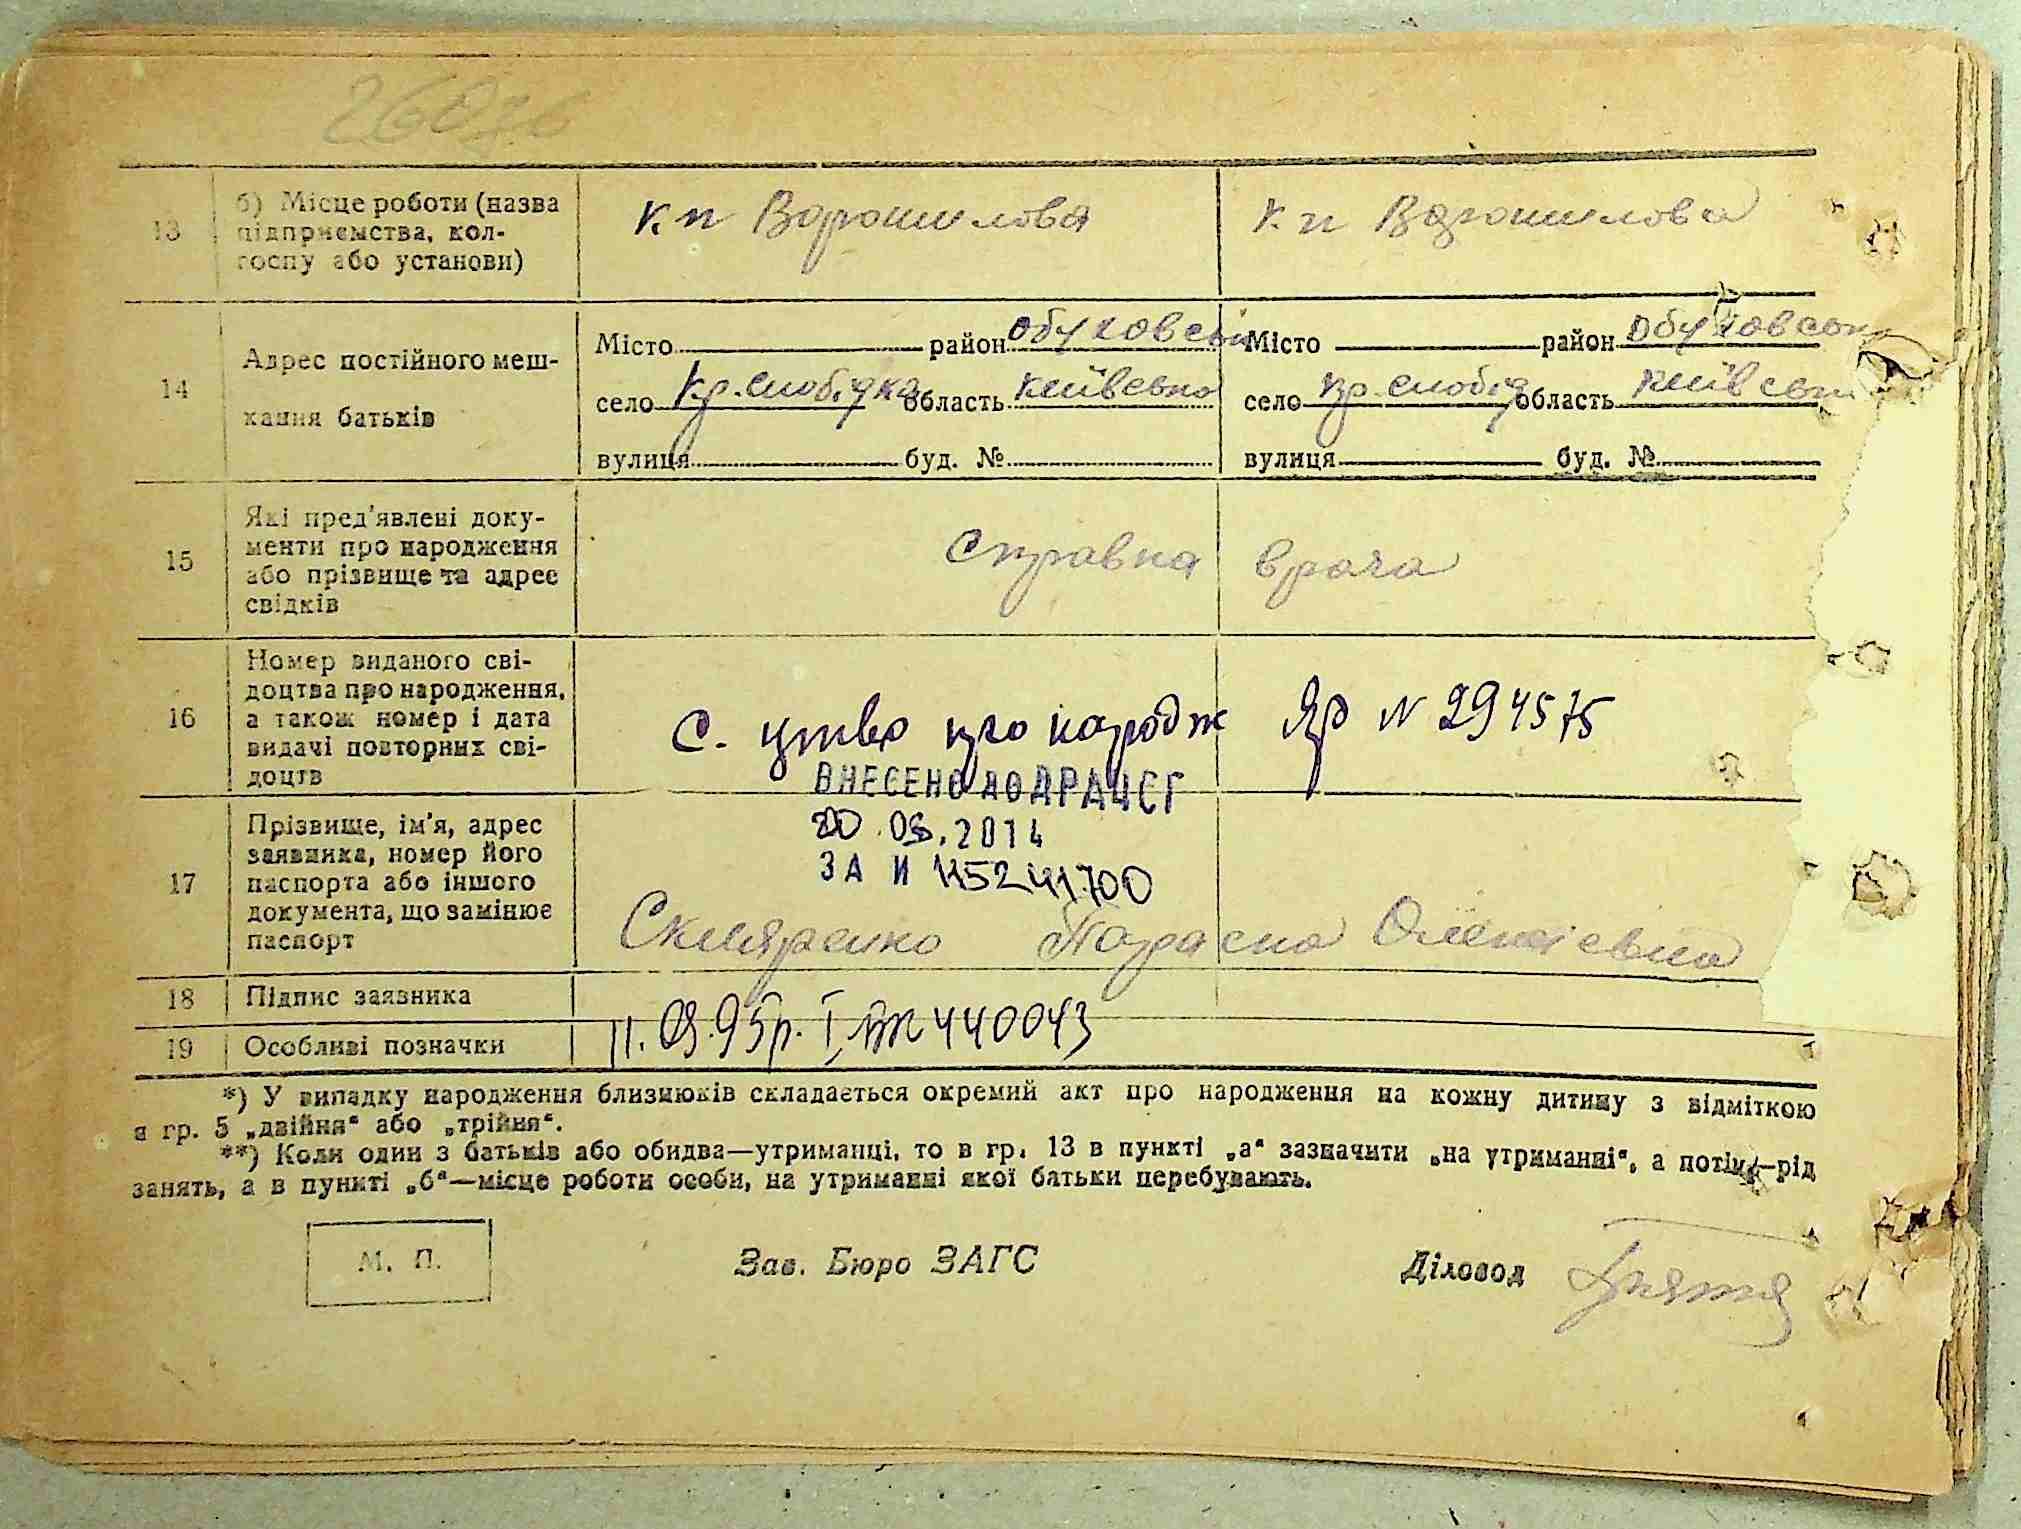 260
13 б) Місце роботи (назва підприємства, кол-госпу або установи) к. п Ворошилова к. п Ворошилова
14 Адрес постійного меш-кання батьків
Місто район Обуховськ Місто район Обуховськ
село Кр. Слобідка область Київська село Кр. Слобід область Київськ
вулиця буд. № вулиця буд. №
15 Які пред'явлені доку-
менти про народження
або прізвище та адрес
свідків
Справка врача
16 Номер виданого сві-
доцтва про народження,
а також номер і дата
видачі повторних сві-
доцтв
С. цтво про народж ЯР N 294575
ВНЕСЕНО ДО ДРАЦСГ
20.05.2014
ЗА N
17 Прізвище, ім'я, адрес
заявника, номер його
паспорта або іншого
документа, що замінює
паспорт
Скляренко Параска Олексіевна
18 Підпис заявника
19 Особливі позначки 11.09.95р. І 440043
*) У випадку народження близнюків складається окремий акт про народження на кожну дитину з відміткою
в гр. 5 „двійня“ або „трійня“.
**) Коли один з батьків або обидва—утриманці, то в гр. 13 в пункті „а“ зазначити „на утриманні“, а потім—рід
занять, а в пункті „б“—місце роботи особи, на утриманні якої батьки перебувають.
М. П. Зав. Бюро ЗАГС Діловод